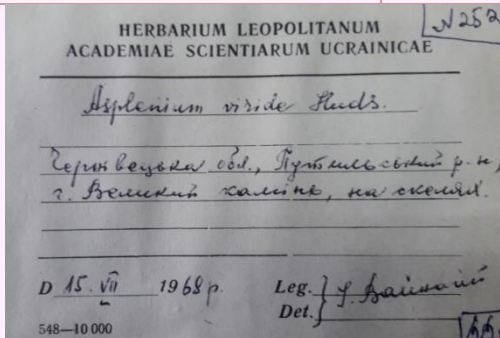 N 252
HERBARIUM LEOPOLITANUM
ACADEMIAE SCIENTIARUM UCRAINICAE
Asplenium viride Huds.
Чернівецька обл., Путильський р-н,
г. Великий камінь, на скелях.
D 15. VII 1968 р. Leg.
Det.
548—10 000